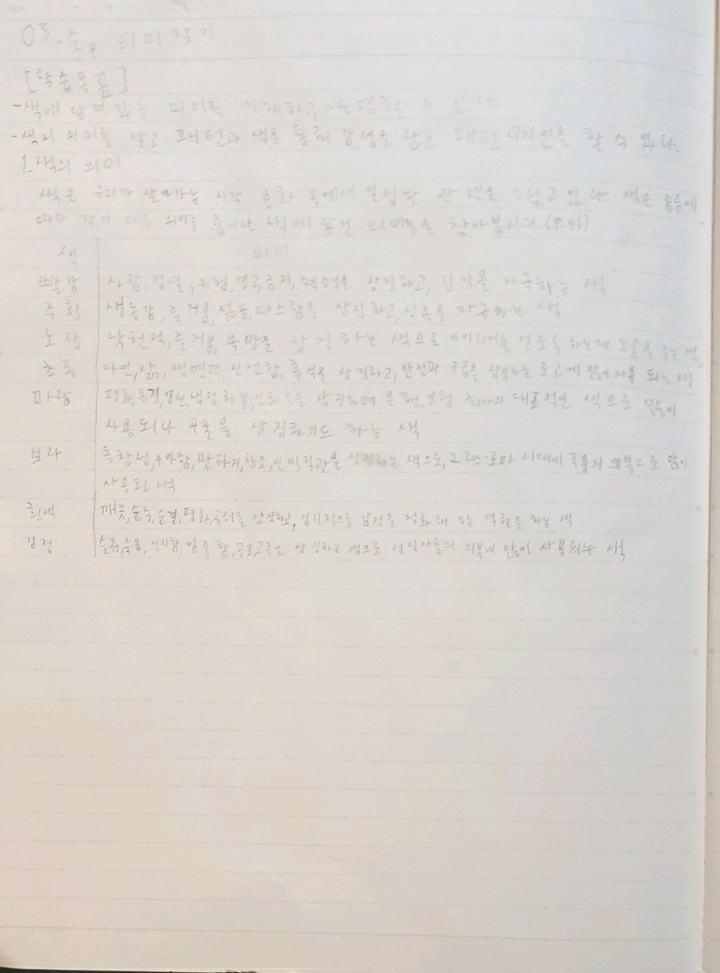 03. 숨은 의미 찾기
[학습목표]
-색에 담겨있는 의미를 이해하고, 설명할 수 있다.
-색의 의미를 알고 패턴과 색을 통해 감정을 담은 패턴 디자인을 할 수 있다.
1.색의 의미
색은 우리가 살아가는 지역 문화 속에서 밀접한 관련을 지니고 있다. 색은 종류에
따라 각기 다른 의미를 줍니다 색에 담긴 의미들을 찾아봅시다.
색 의미
빨강 사랑,정열,위험,경국금지,혁명을 상징하고, 감각을 자극하는 색
주황 생동감,즐거움,젊음,따스함을 상징하고,식욕을 자극하는 색
노랑 낙천적,즐거움,북망을 상징하는 색으로 아이디어를 얻도록 하는데 도움을 주는 색
초록 자연,삶,생명력,신선함,휴식을 상징하고,안전과 구급을 상징하는 로고에 많이 사용 되는 색
파랑 평화,동경,영원,냉정,하늘,신뢰 등을 상징하며 은행,보험 회사의 대표적인 색으로 많이
사용되나 우울을 상징하기도 하는 색
보라 독창성,우아함,판타지,창조,신비,직관을 상징하는 색으로,그리스·로마 시대에 의복으로 많이
사용된 색
흰색 깨끗,순수,순결,평화를 상징하고, 심리적으로 감정을 정화해 주는 역할을 하는 색
검정 슬픔,죽음,진지함,엄숙함,공포,고독을 상징하는 색으로 성직자들의 의복에 많이 사용되는 색